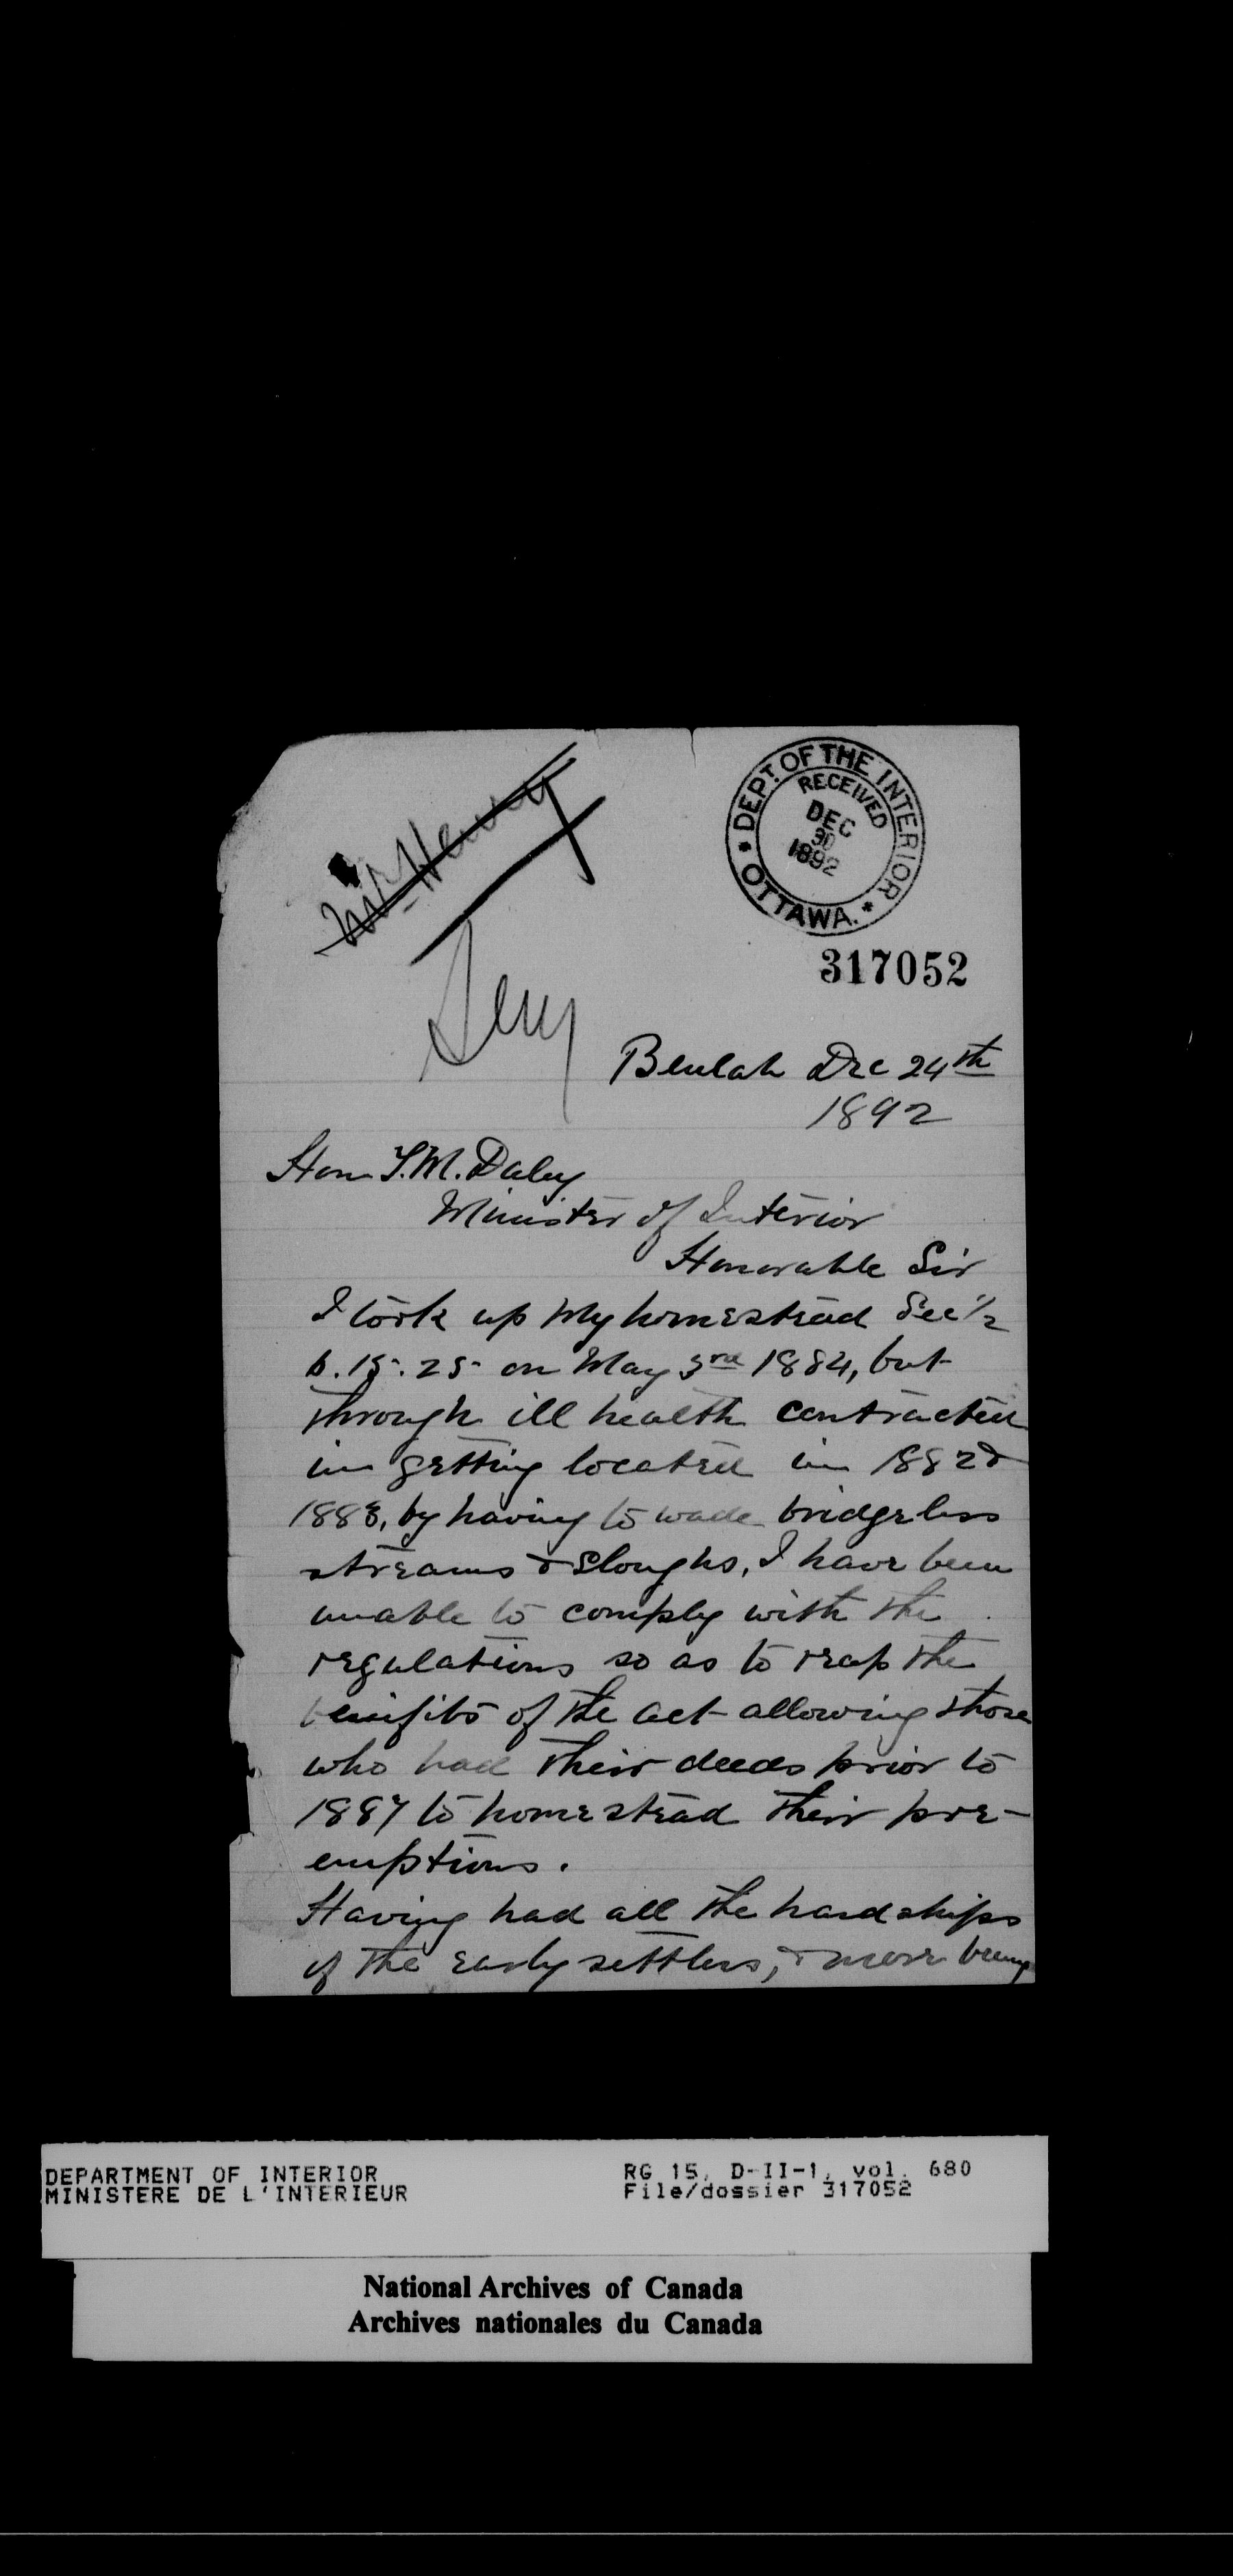 DEPT. OF THE INTERIOR
RECEIVED
DEC
30
1892
OTTAWA.
317052
Beulah Dec 24th
1892
Hon T.M. Daly
Minister of Interior
Honorable Sir
I took up my homestead Sec ½
6.15.25 on May 3rd 1884, but
through ill health contracted
in getting located in 1882 &
1883, by having to wade bridgeless
streams & sloughs, I have been
unable to comply with the
regulations so as to reap the
benifits of the act allowing those
who had their deeds prior to
1887 to homestead their pre-
emptions.
Having had all the hardships
of the early settlers, & more being
DEPARTMENT OF INTERIOR
MINISTERE DE L'INTERIEUR
RG 15, D-II-1, vol. 680
File/dossier 317052
National Archives of Canada
Archives nationales du Canada